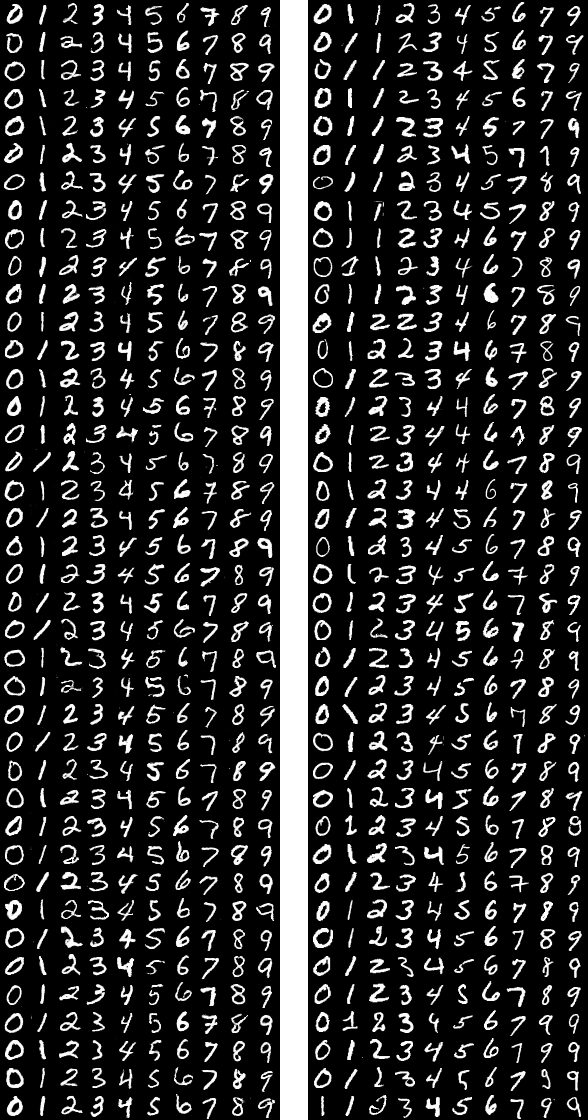 0 1 2 3 4 5 6 7 8 9
0 1 2 3 4 5 6 7 8 9
0 1 2 3 4 5 6 7 8 9
0 1 2 3 4 5 6 7 8 9
0 1 2 3 4 5 6 7 8 9
0 1 2 3 4 5 6 7 8 9
0 1 2 3 4 5 6 7 8 9
0 1 2 3 4 5 6 7 8 9
0 1 2 3 4 5 6 7 8 9
0 1 2 3 4 5 6 7 8 9
0 1 2 3 4 5 6 7 8 9
0 1 2 3 4 5 6 7 8 9
0 1 2 3 4 5 6 7 8 9
0 1 2 3 4 5 6 7 8 9
0 1 2 3 4 5 6 7 8 9
0 1 2 3 4 5 6 7 8 9
0 1 2 3 4 5 6 7 8 9
0 1 2 3 4 5 6 7 8 9
0 1 2 3 4 5 6 7 8 9
0 1 2 3 4 5 6 7 8 9
0 1 2 3 4 5 6 7 8 9
0 1 2 3 4 5 6 7 8 9
0 1 2 3 4 5 6 7 8 9
0 1 2 3 4 5 6 7 8 9
0 1 2 3 4 5 6 7 8 9
0 1 2 3 4 5 6 7 8 9
0 1 2 3 4 5 6 7 8 9
0 1 2 3 4 5 6 7 8 9
0 1 2 3 4 5 6 7 8 9
0 1 2 3 4 5 6 7 8 9
0 1 2 3 4 5 6 7 8 9
0 1 2 3 4 5 6 7 8 9
0 1 2 3 4 5 6 7 8 9
0 1 2 3 4 5 6 7 8 9
0 1 2 3 4 5 6 7 8 9
0 1 2 3 4 5 6 7 8 9
0 1 2 3 4 5 6 7 8 9
0 1 2 3 4 5 6 7 8 9
0 1 2 3 4 5 6 7 8 9
0 1 2 3 4 5 6 7 8 9
0 1 1 2 3 4 5 6 7 9
0 1 1 2 3 4 5 6 7 9
0 1 1 2 3 4 5 6 7 9
0 1 1 2 3 4 5 6 7 9
0 1 1 2 3 4 5 7 7 9
0 1 1 2 3 4 5 7 7 9
0 1 1 2 3 4 5 7 8 9
0 1 1 2 3 4 5 7 8 9
0 1 1 2 3 4 6 7 8 9
0 1 1 2 3 4 6 7 8 9
0 1 1 2 3 4 6 7 8 9
0 1 2 2 3 4 6 7 8 9
0 1 2 2 3 4 6 7 8 9
0 1 2 3 3 4 6 7 8 9
0 1 2 3 4 4 6 7 8 9
0 1 2 3 4 4 6 7 8 9
0 1 2 3 4 4 6 7 8 9
0 1 2 3 4 4 6 7 8 9
0 1 2 3 4 5 6 7 8 9
0 1 2 3 4 5 6 7 8 9
0 1 2 3 4 5 6 7 8 9
0 1 2 3 4 5 6 7 8 9
0 1 2 3 4 5 6 7 8 9
0 1 2 3 4 5 6 7 8 9
0 1 2 3 4 5 6 7 8 9
0 1 2 3 4 5 6 7 8 9
0 1 2 3 4 5 6 7 8 9
0 1 2 3 4 5 6 7 8 9
0 1 2 3 4 5 6 7 8 9
0 1 2 3 4 5 6 7 8 9
0 1 2 3 4 5 6 7 8 9
0 1 2 3 4 5 6 7 8 9
0 1 2 3 4 5 6 7 8 9
0 1 2 3 4 5 6 7 8 9
0 1 2 3 4 5 6 7 8 9
0 1 2 3 4 5 6 7 8 9
0 1 2 3 4 5 6 7 9 9
0 1 2 3 4 5 6 7 9 9
0 1 2 3 4 5 6 7 9 9
1 1 2 3 4 5 6 7 9 9